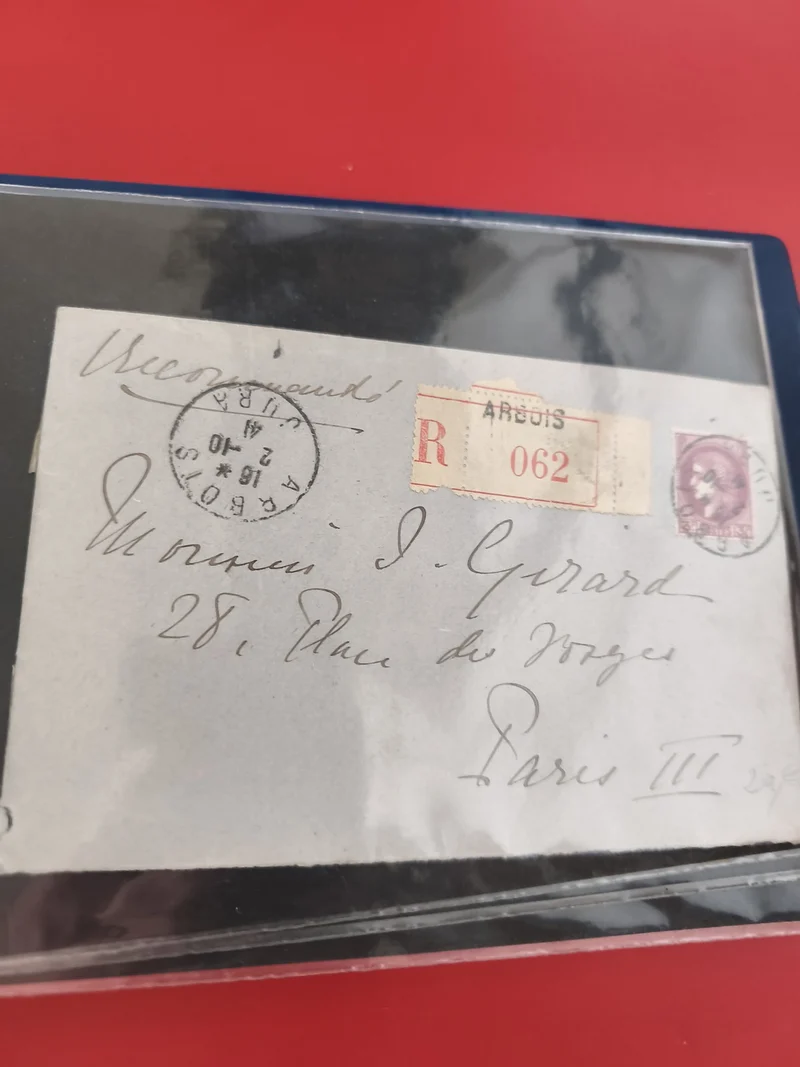 Recommandé
ARBOIS
R 062
ARBOIS
16 *
2 -10
41
JURA
Monsieur J. Girard
28, Place des Vosges
Paris III